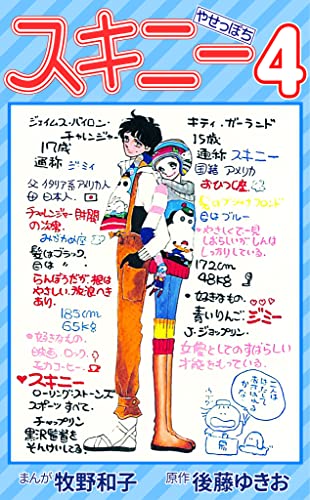 やせっぽち
スキニー4
ジェイムス・バイロン・
チャレンジャー
17歳
通称 ジミィ
父 イタリア系アメリカ人
母 日本人
チャレンジャー財閥
の次男
みずがめ座
髪はブラック
目は 〃
らんぼうだが、根は
やさしい、放浪へき
あり。
185cm
65kg
好きなもの
映画、ロック、
エカコーヒー
♥スキニー
ローリング・ストーンズ
スポーツすべて。
チャップリン
黒沢監督を
そんけいしてる
キティ・ガーランド
15歳
通称 スキニー
国籍 アメリカ
おひつじ座
目はブルー
やさしくて一見
しおらしいがしんは
しっかりしている。
172cm
48kg
好きなもの
♡♡♡
青いりんご ジミー
J・ジョップリン
女優としてのすばらしい
才能をもっている。
まんが 牧野和子
原作 後藤ゆきお